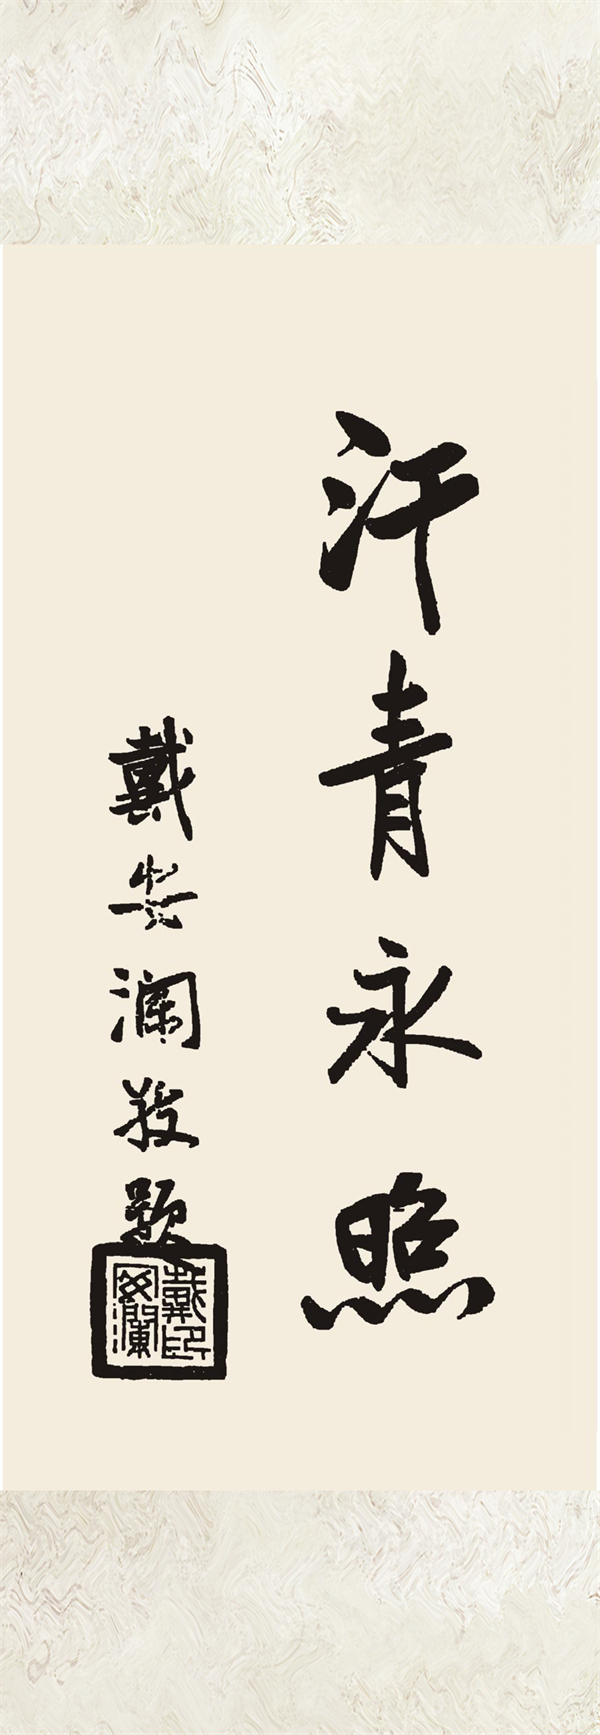 汗青永照
戴安澜敬题
戴印安瀾